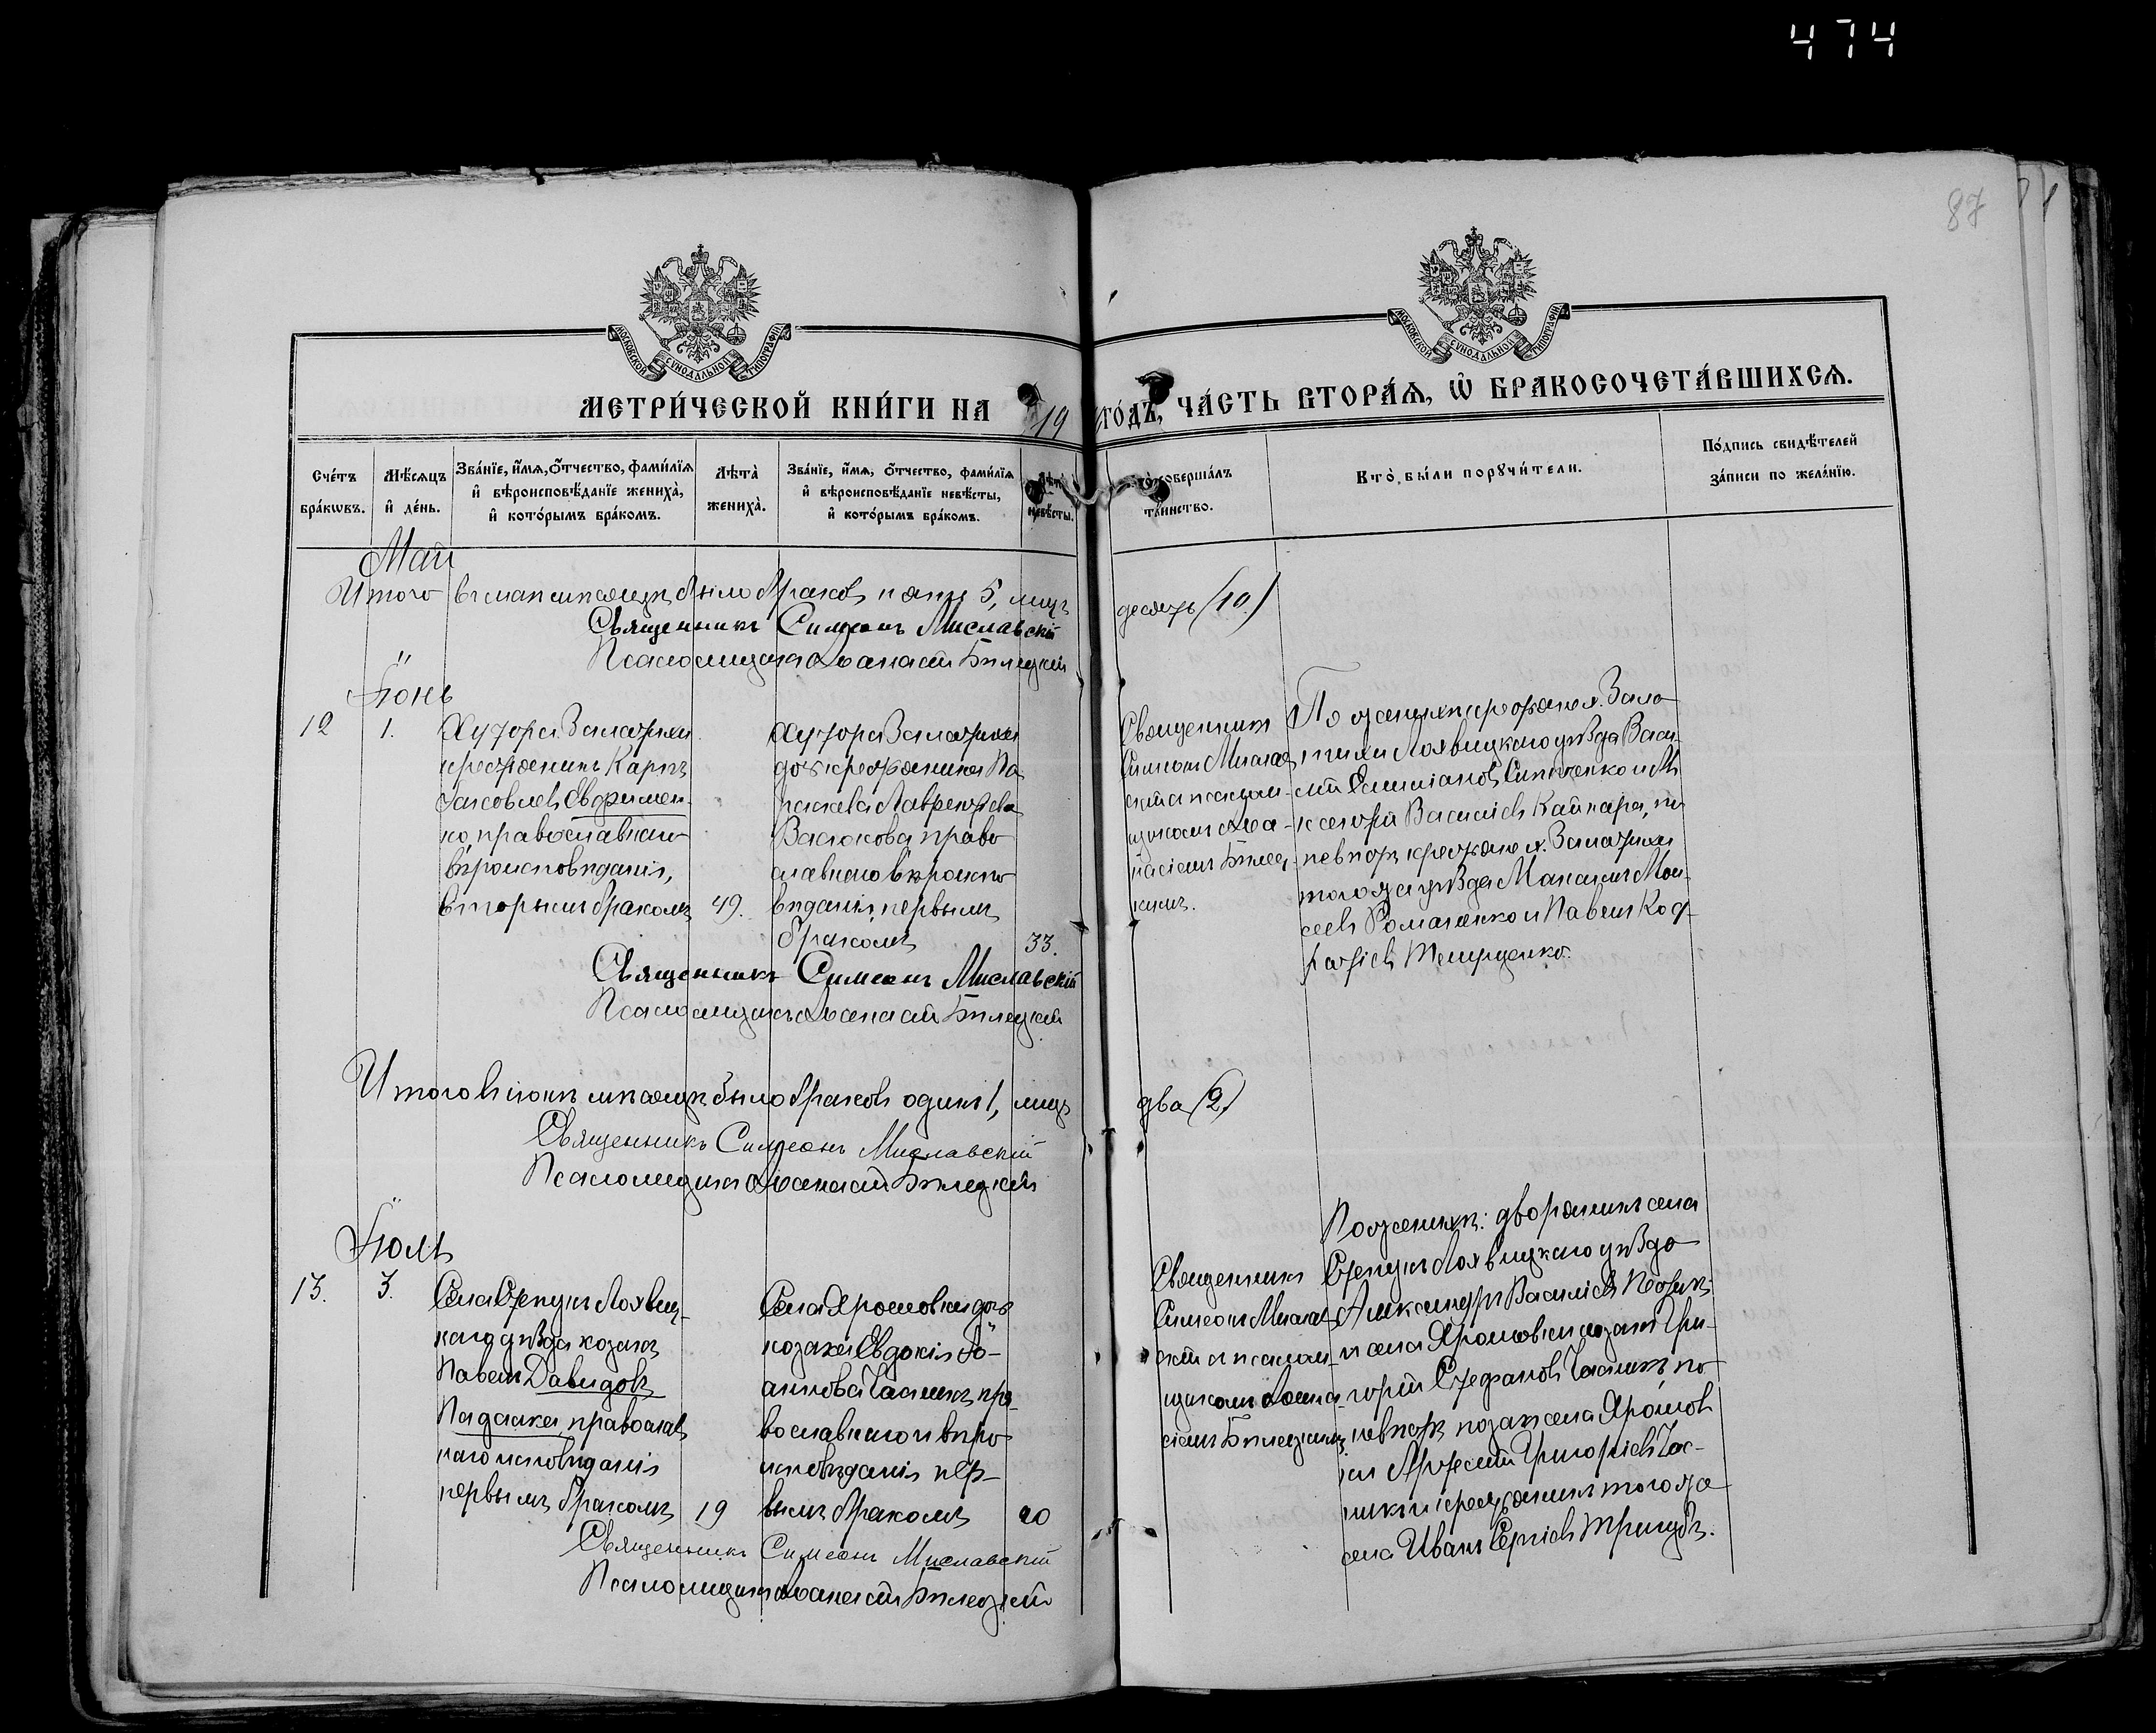 474
87
МОСКОВСКОЙ СѴНОДАЛЬНОЙ ТИПОГРАФІИ
МОСКОВСКОЙ СѴНОДАЛЬНОЙ ТИПОГРАФІИ
МЕТРИ́ЧЕСКОЙ КНИ́ГИ НА 19
ГО́ДЪ, ЧА́СТЬ ВТОРА́Ѧ, Ѽ БРАКОСОЧЕТА́ВШИХСѦ.
Сче́тъ бра́кѡвъ.
Мѣ́сѧцъ и҆ де́нь.
Зва́нїе, и҆́мѧ, ѻ҆́тчество, фами́лїѧ
и҆ вѣроисповѣ́данїе жениха̀,
и҆ кото́рымъ бра́комъ.
Лѣ́та̀ жениха̀.
Зва́нїе, и҆́мѧ, ѻ҆́тчество, фами́лїѧ
и҆ вѣроисповѣ́данїе невѣ́сты,
и҆ кото́рымъ бра́комъ.
невѣ́сты.
соверша́лъ
та́инство.
Кто̀ бы́ли порꙋчи́тели.
По́дпись свидѣ́телей
за́писи по жела́нїю.
Май
Итого въ маѣ мѣсяцѣ было браковъ пять 5, лицъ
десять (10.)
Священникъ Симеонъ Миславскій
Псаломщикъ Аѳанасій Бѣлецкій
Іюнь
12 1.
Хутора
крестьянинъ Карпъ
Яковлевъ Евфимен-
ко, православнаго
вѣроисповѣданія,
вторымъ бракомъ 49.
Хутора
дочь крестьянина Па-
раскева Лаврентьева
Васюкова право
славнаго вѣроиспо
вѣданія, первымъ
бракомъ 33.
Священникъ
Симеонъ Мислав
скій и псалом-
щикомъ Аѳа-
насіемъ Бѣлец-
кимъ.
По женихѣ: крестьяне х.
Лохвицкаго уѣзда Васи-
лій
Василіевъ
невѣстѣ крестьяне х.
того же уѣзда Мои-
сеевъ Романенко и Павелъ
Священникъ Симеонъ Миславскій
Псаломщикъ Аѳанасій Бѣлецкій
Итого въ іюнѣ мѣсяцѣ было браковъ одинъ 1, лицъ
два (2.)
Священникъ Симеонъ Миславскій
Псаломщикъ Аѳанасій Бѣлецкій
Іюль
13. 3.
Села Лохвиц-
каго уѣзда козакъ
Павелъ Давидовъ
православ
наго исповѣданія
первымъ бракомъ 19
Села Ярошовки дочь
козака Евдокія Іо-
аннова Часникъ, пра-
вославнаго вѣро
исповѣданія пер-
вымъ бракомъ 20
Священникъ
Симеонъ Мислав
скій и псалом-
щикомъ Аѳана
сіемъ Бѣлецкимъ
По женихѣ: дворянинъ села
Лохвицкаго уѣзда
Александръ Василіевъ
и села Ярошовки козакъ Гри-
горій Стефановъ Часникъ, по
невѣстѣ козакъ села Ярошов
ки Григоріевъ Час-
никъ и крестьянинъ того же
села Иванъ Сергіевъ
Священникъ Симеонъ Миславскій
Псаломщикъ Аѳанасій Бѣлецкій